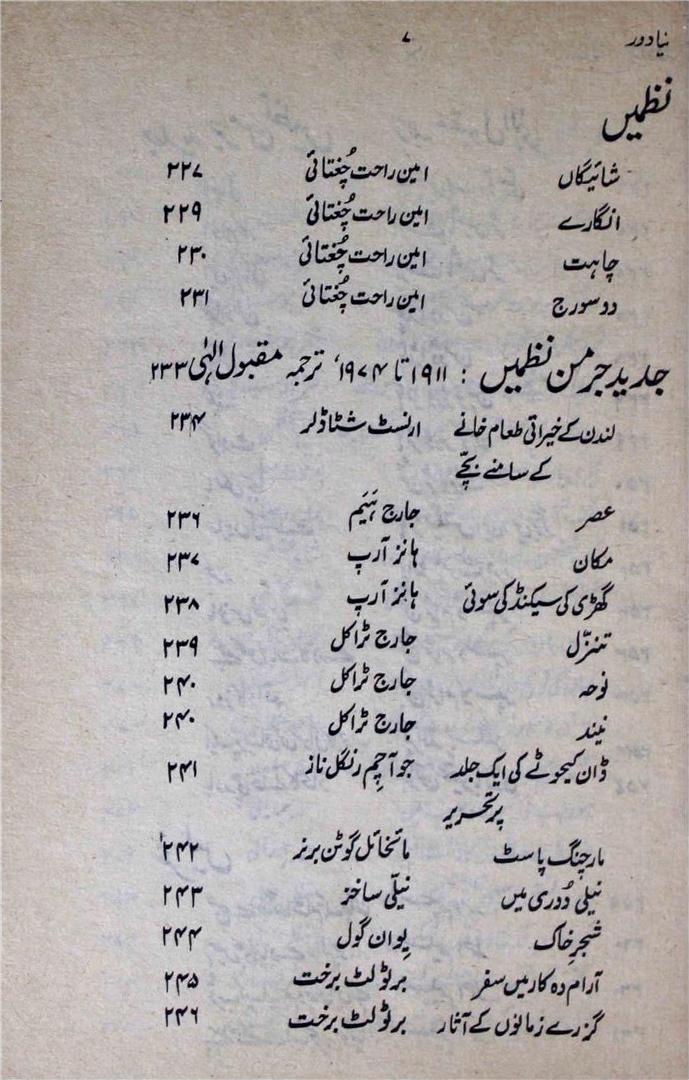 نیا دور ۷
نظمیں
شائیگاں امین راحت چُغتائی ۲۲۷
انگارے امین راحت چُغتائی ۲۲۹
چاہت امین راحت چُغتائی ۲۳۰
دو سورج امین راحت چُغتائی ۲۳۱
جدید جرمن نظمیں : ۱۹۱۱ تا ۱۹۷۴، ترجمہ مقبول الٰہی ۲۳۳
لندن کے خیراتی طعام خانے ارنسٹ شٹاڈلر ۲۳۴
کے سامنے بچّے
عصر جارج ہَیَم ۲۳۶
مکان ہانز آرپ ۲۳۷
گھڑی کی سیکنڈ کی سوئی ہانز آرپ ۲۳۸
تنزّل جارج ٹراکل ۲۳۹
نوحہ جارج ٹراکل ۲۴۰
نیند جارج ٹراکل ۲۴۰
ڈان کیحوٹے کی ایک جلد جو آچِم رنگل ناز ۲۴۱
پر تحریر
مارچنگ پاسٹ مائخائل گوٹن برنر ۲۴۲
نیلی دُوری میں نیلّی ساخز ۲۴۳
شجرِ خاک یوان گول ۲۴۴
آرام دہ کار میں سفر برلوٹ برخت ۲۴۵
گزرے زمانوں کے آثار برلوٹ برخت ۲۴۶